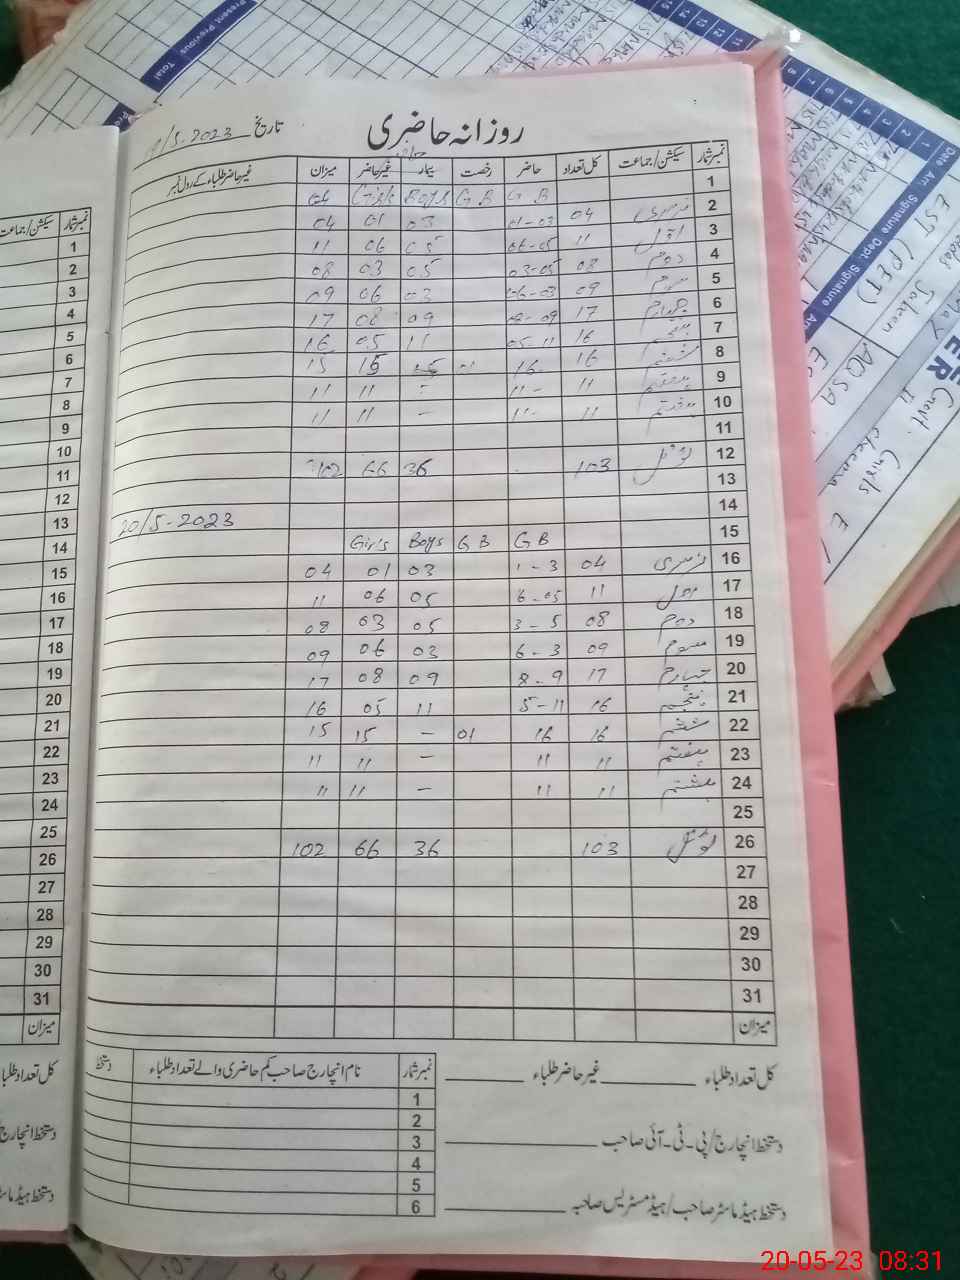 روزانہ حاضری
تاریخ 19/5-2023
نمبر شمار سیکشن/جماعت کل تعداد حاضر رخصت بیمار غیر حاضر میزان غیر حاضر طلباء کے رول نمبر
1 G B G B Boys Girls
2 نرسری 04 01-03 03 01 04
3 اول 11 06-05 05 06 11
4 دوم 08 03-05 05 03 08
5 سوم 09 06-03 03 06 09
6 چہارم 17 08-09 09 08 17
7 پنجم 16 05-11 11 05 16
8 ششم 16 16- 15 15
9 ہفتم 11 11- - 11 11
10 11 11- - 11 11
11
12 ٹوٹل 103 36 66 102
13
14
20/5-2023
15 G B G B Boys Girls
16 نرسری 04 1-3 03 01 04
17 اول 11 6-05 05 06 11
18 دوم 08 3-5 05 03 08
19 سوم 09 6-3 03 06 09
20 چہارم 17 8-9 09 08 17
21 پنجم 16 5-11 11 05 16
22 ششم 16 16 01 - 15 15
23 ہفتم 11 11 - 11 11
24 ہشتم 11 11 - 11 11
25
26 ٹوٹل 103 36 66 102
27
28
29
30
31
میزان
کل تعداد طلباء غیر حاضر طلباء
دستخط انچارج/پی-ٹی-آئی صاحب
دستخط ہیڈ ماسٹر صاحب/ہیڈ مسٹریس صاحبہ
نمبر شمار نام انچارج صاحب کم حاضری والے تعداد طلباء دستخط
1
2
3
4
5
6
نمبر شمار سیکشن/جماعت
1
2
3
4
5
6
7
8
9
10
11
12
13
14
15
16
17
18
19
20
21
22
23
24
25
26
27
28
29
30
31
میزان
کل تعداد طلبا
دستخط انچارج
دستخط ہیڈ ماسٹر
Present Previous Total
Date Arr. Signature Dept. Signature
EST (PET)
AQSA
Govt. Girls
cheema
20-05-23 08:31